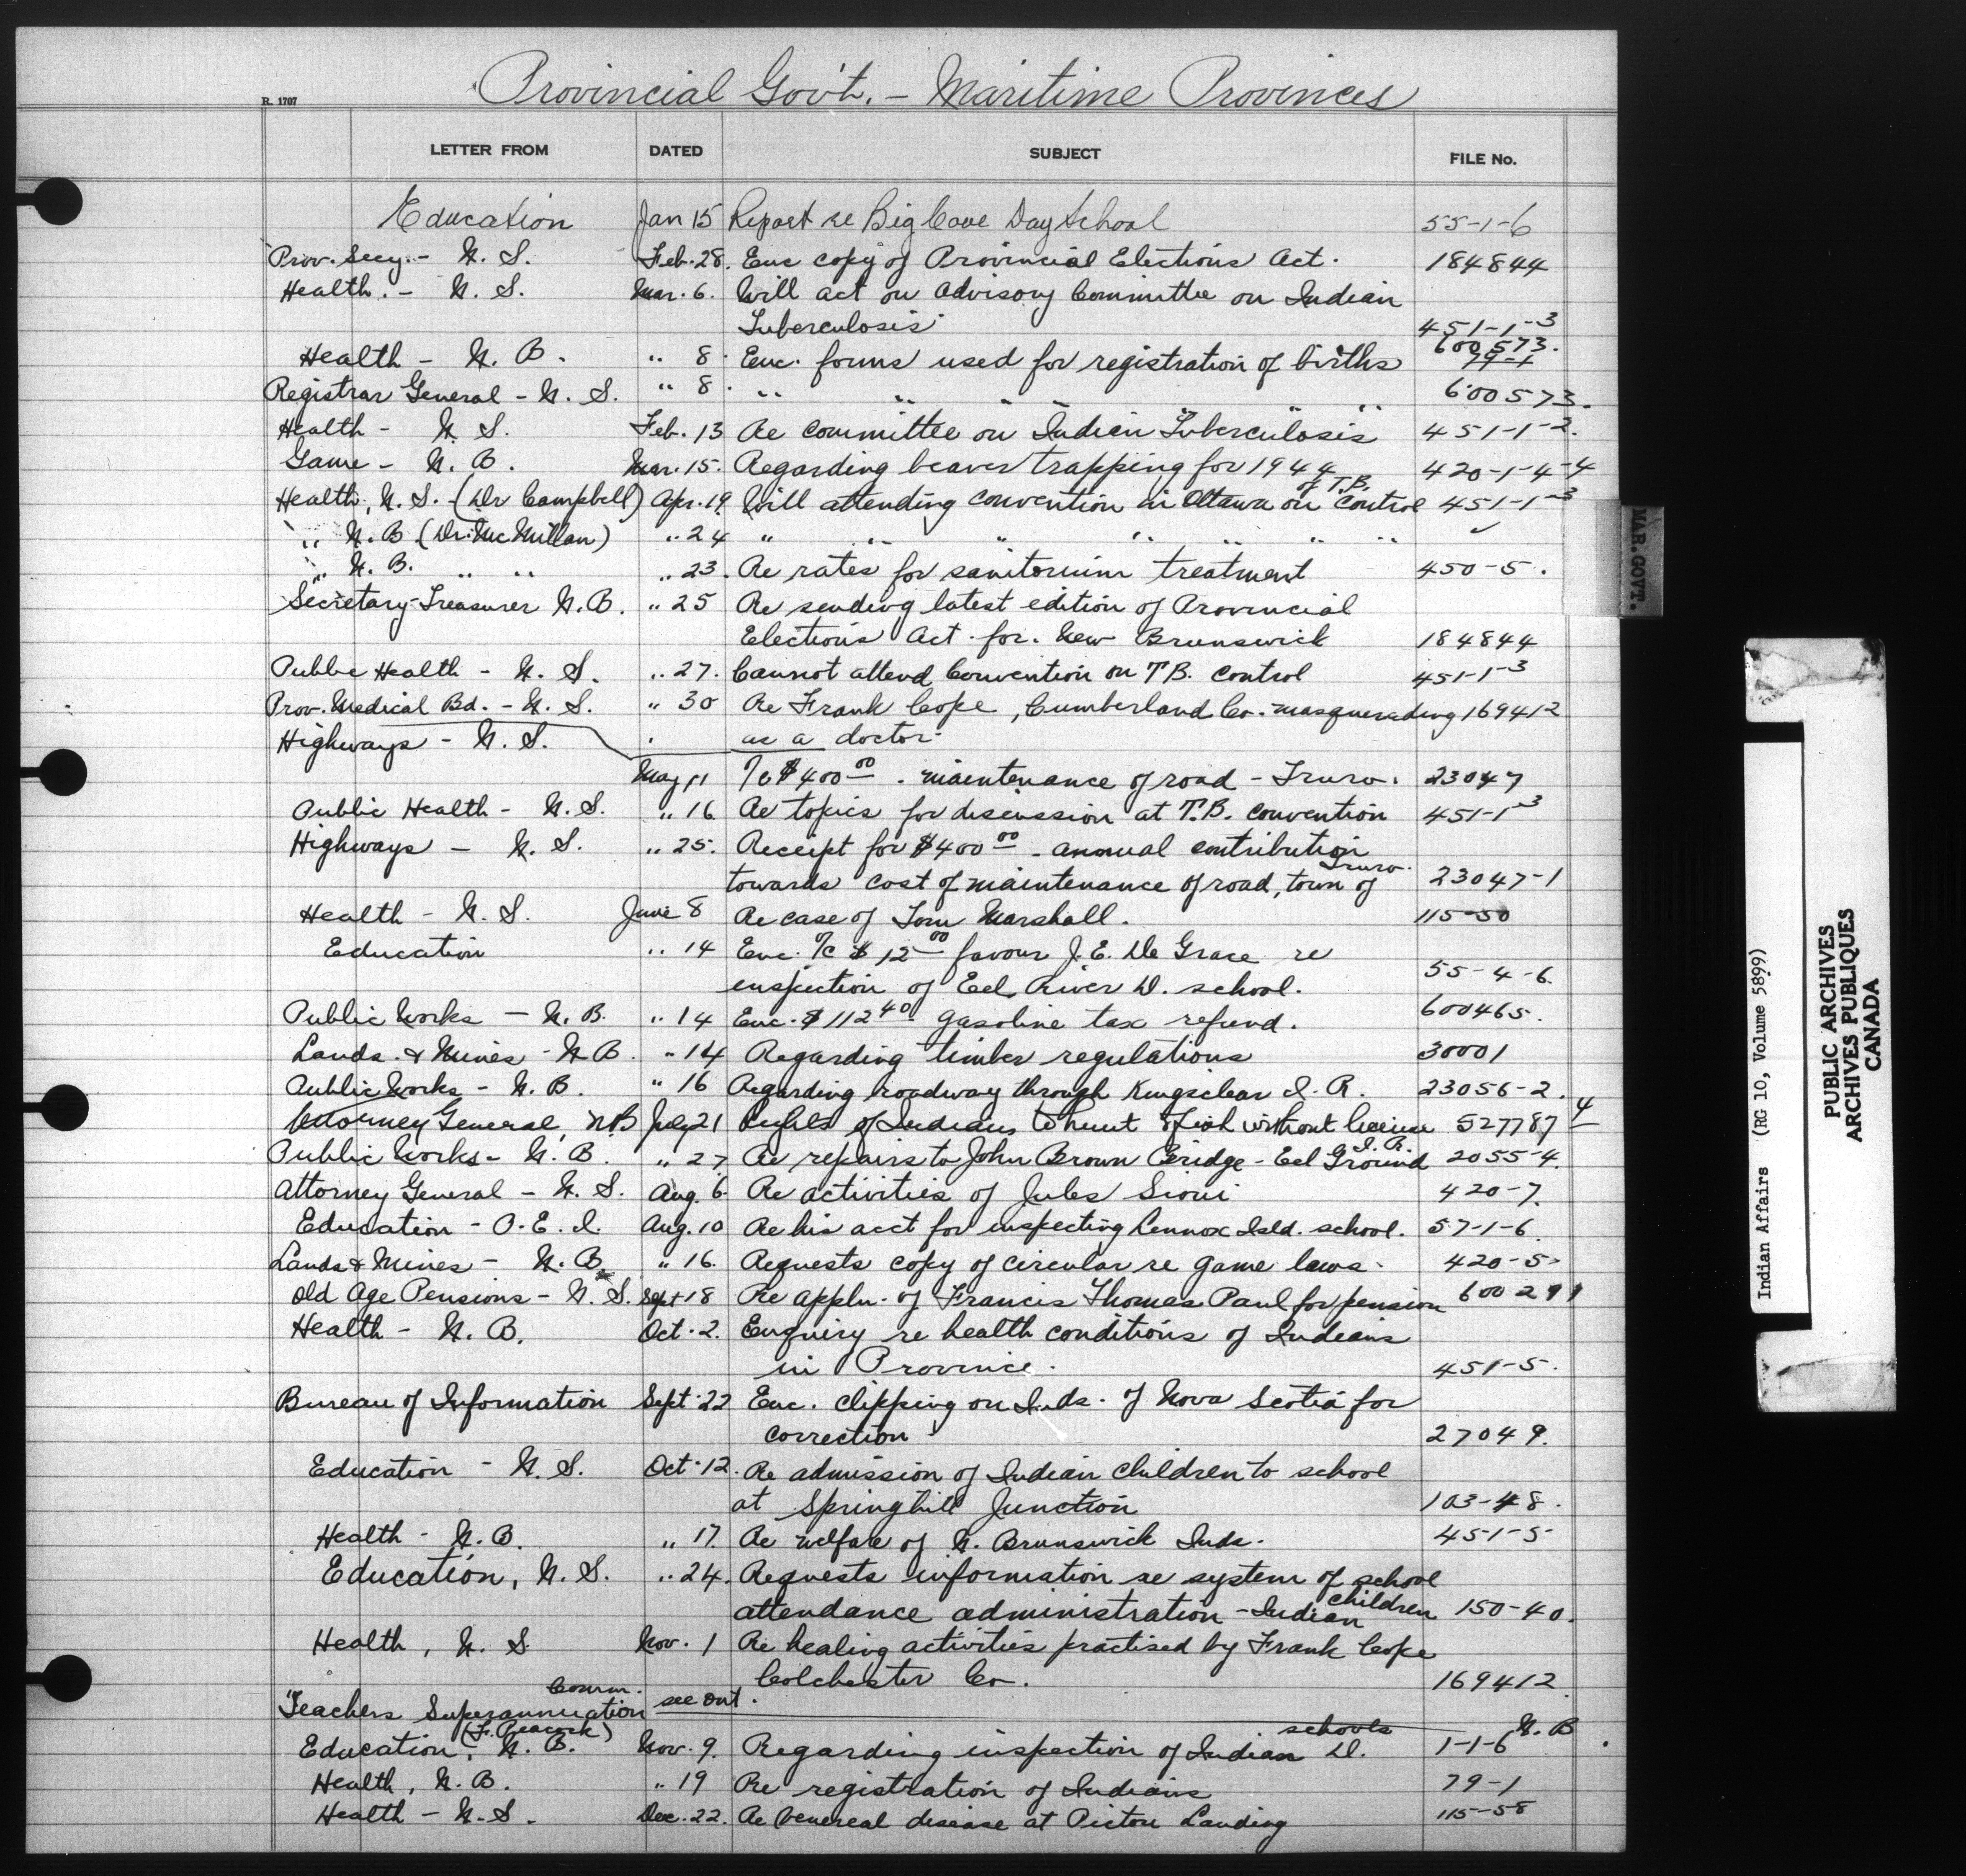 Provincial Gov't. - Maritime Provinces
R. 1707
LETTER FROM DATED SUBJECT FILE No.
Education Jan 15 Report re Big Cove Day School 55-1-6
Prov. Secy. - N. S. Feb. 28. Enc copy of Provincial Elections Act. 184844
Health. - N. S. Mar. 6. Will act on Advisory Committee on Indian
Tuberculosis 451-1-3
Health - N. B. " 8. Enc. forms used for registration of births 600573. 79-1
Registrar General - N. S. " 8. " " " " " " 600573.
Health - N. S. Feb. 13 Re committee on Indian Tuberculosis 451-1-2.
Game - N. B. Mar. 15. Regarding beaver trapping for 1944 420-1-4-4
Health, N. S. (Dr Campbell) Apr. 19. Will attending convention in Ottawa on of T.B. Control 451-1-3
" N. B (Dr. McMillan) " 24 " " " " " " " ✓
" N. B. " " " 23. Re rates for sanitorium treatment 450-5.
Secretary-Treasurer N.B. " 25 Re sending latest edition of Provincial
Elections Act for New Brunswick 184844
Public Health - N. S. " 27. Cannot attend Convention on T.B. control 451-1-3
Prov. Medical Bd. - N. S. " 30 Re Frank Cope, Cumberland Co. masquerading 169412
as a doctor
Highways - N. S. May 11 /c $400 00 - maintenance of road - Truro. 23047
Public Health - N. S. " 16 Re topics for discussion at T.B. convention 451-1-3
Highways - N. S. " 25. Receipt for $400 00 - annual contribution
towards cost of maintenance of road, town of Truro. 23047-1
Health - N. S. June 8 Re case of Tom Marshall. 115-50
Education " 14 Enc. o/c $12 00 favour J. E. De Grace re
inspection of Eel River D. school. 55-4-6.
Public Works - N. B. " 14 Enc. $112 40 gasoline tax refund. 600465.
Lands & Mines - N B. " 14 Regarding timber regulations 30001
Public Works - N. B. " 16 Regarding roadway through Kingsclear I. R. 23056-2.
Attorney General, N.B July 21 Rights of Indians to hunt & fish without license 527787-4
Public Works - N. B. " 27 Re repairs to John Brown Bridge - Eel Ground I. R. 2055-4.
Attorney General - N. S. Aug. 6 Re activities of Jules Sioui 420-7.
Education - P. E. I. Aug. 10 Re his acct for inspecting Lennox Isld. school. 57-1-6.
Lands & Mines - N. B. " 16. Requests copy of circular re game laws. 420-5
Old Age Pensions - N. S. Sept 18 Re appln. of Francis Thomas Paul for pension 600291
Health - N. B. Oct. 2. Enquiry re health conditions of Indians
in Province. 451-5.
Bureau of Information Sept. 22 Enc. clipping on Inds. of Nova Scotia for
correction 27049.
Education - N. S. Oct. 12. Re admission of Indian children to school
at Springhill Junction 103-48.
Health - N. B. " 17. Re welfare of N. Brunswick Inds. 451-5
Education, N. S. " 24. Requests information re system of school
attendance administration - Indian children 150-40.
Health, N. S Nov. 1 Re healing activities practised by Frank Cope
Colchester Co. 169412
Teachers Superannuation Comm. see out.
Education, N. B. (F. Peacock) Nov. 9. Regarding inspection of Indian D. schools 1-1-6 N. B.
Health, N. B. " 19 Re registration of Indians 79-1
Health - N. S. Dec. 22. Re venereal disease at Pictou Landing 115-58
MAR. GOVT.
Indian Affairs (RG 10, Volume 5899)
PUBLIC ARCHIVES
ARCHIVES PUBLIQUES
CANADA